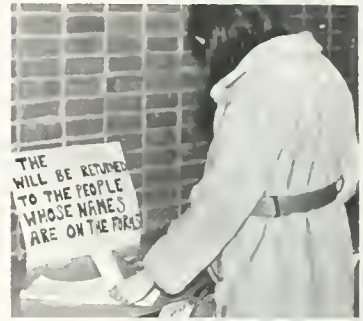 THE
WILL BE RETURNED
TO THE PEOPLE
WHOSE NAMES
ARE ON THE FORMS